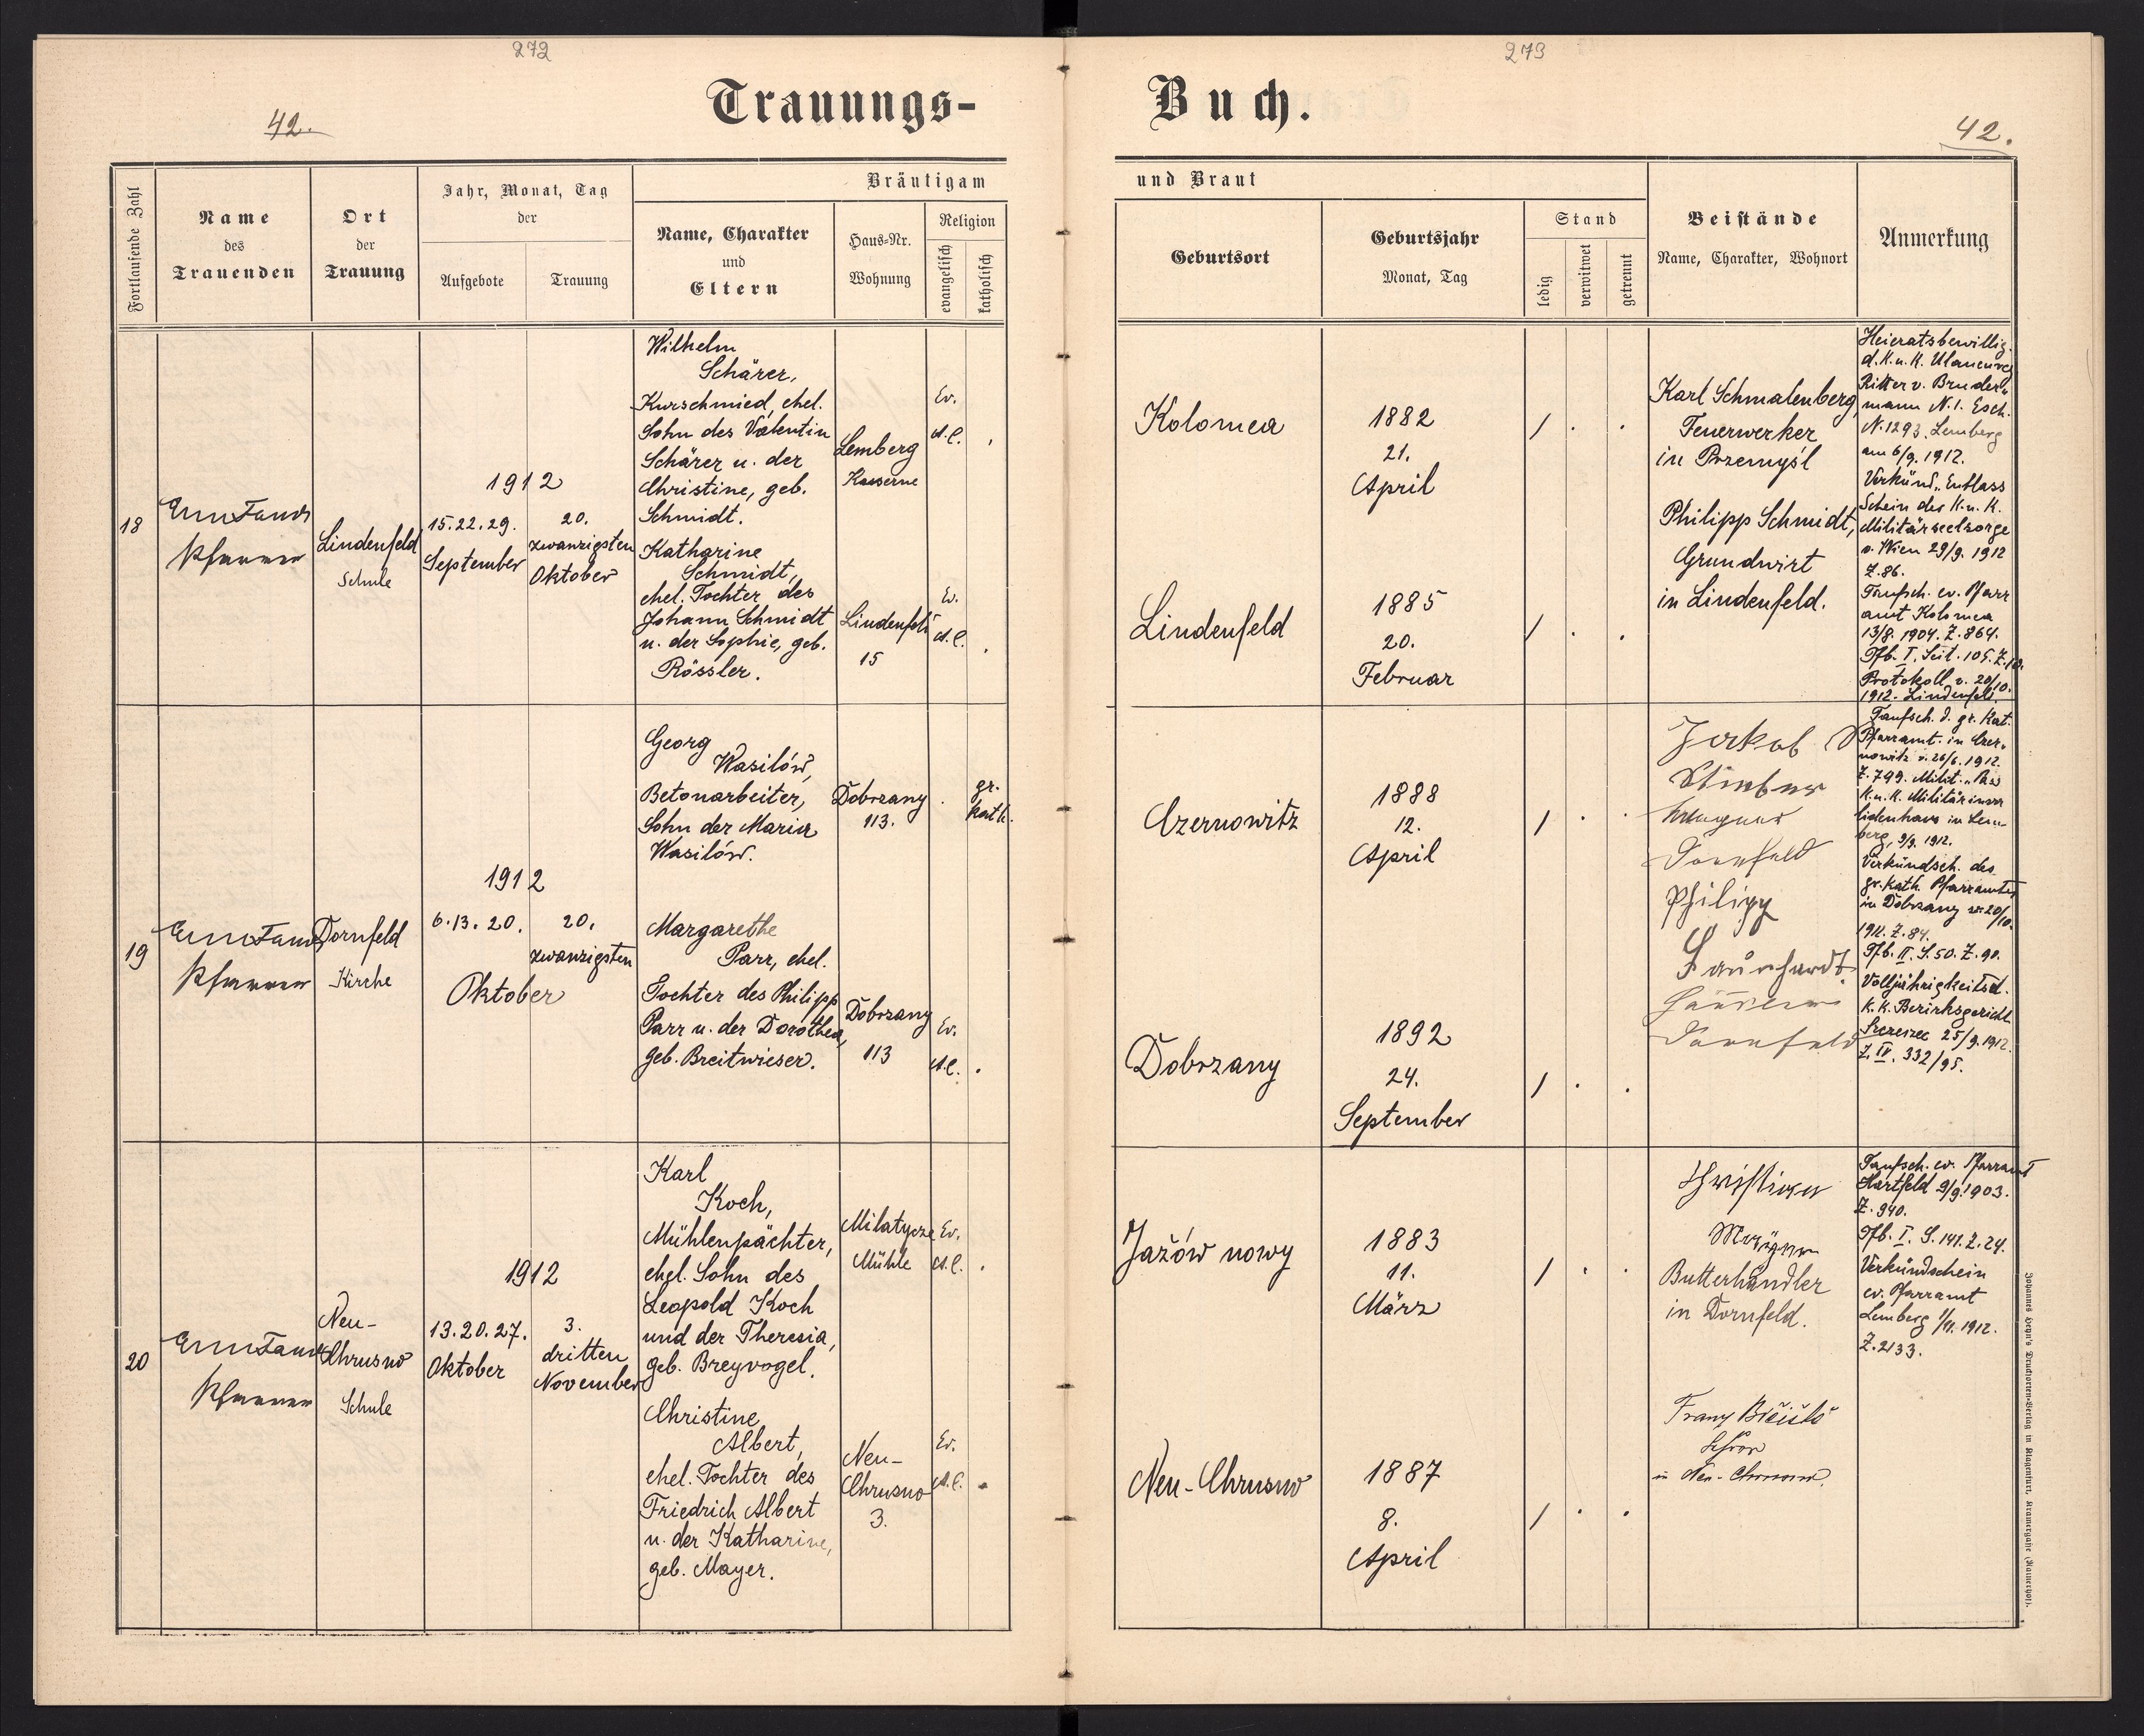 272
273
42.
42.
Trauungs-
Buch.
Fortlaufende Zahl
Name
des
Trauenden
Ort
der
Trauung
Jahr, Monat, Tag
der
Aufgebote
Trauung
Bräutigam
Name, Charakter
und
Eltern
Haus-Nr.
Wohnung
Religion
evangelisch
katholisch
und Braut
Geburtsort
Geburtsjahr
Monat, Tag
Stand
ledig
verwitwet
getrennt
Beistände
Name, Charakter, Wohnort
Anmerkung
18
Pfarrer
Lindenfeld
Schule
1912
15. 22. 29.
September
20.
zwanzigsten
Oktober
Wilhelm
Schärer,
Kurschmied, ehel.
Sohn des Valentin
Schärer u. der
Christine, geb.
Schmidt.
Lemberg
Kaserne
Ev.
A.C.
Katharine
Schmidt,
ehel. Tochter des
Johann Schmidt
u. der Sophie, geb.
Rössler.
Lindenfeld
15
Ev.
A.C.
Kolomea
1882
21.
April
Lindenfeld
1885
20.
Februar
Karl Schmalenberg,
Feuerwerker
in Przemyśl
Philipp Schmidt,
Grundwirt
in Lindenfeld.
Heieratsbewillig.
d. K. u. K. Ulanenreg
Ritter v. Bruder„
mann N. 1. Esch.
N. 1293. Lemberg
am 6/9. 1912.
Verkünd„ Entlass
Schein der K. u. K.
Militärseelsorge
v. Wien 29/9. 1912
Z. 86.
Taufsch. ev. Pfarr
amt Kolomea
13/8. 1904. Z. 864.
Tfb. I. Seit. 105. Z. 10.
Protokoll v. 20/10.
1912. Lindenfeld.
19
Pfarrer
Dornfeld
Kirche
1912
6. 13. 20.
20.
zwanzigsten
Oktober
Georg
Wasilów,
Betonarbeiter,
Sohn der Maria
Wasilów.
Dobrzany
113.
gr.
kath.
Margarethe
Parr, ehel.
Tochter des Philipp
Parr u. der Dorothea,
geb. Breitwieser.
Dobrzany
113
Ev.
A.C.
Czernowitz
1888
12.
April
Dobrzany
1892
24.
September
Jakob
Dornfeld
Philipp
Dornfeld
Taufsch. d. gr. Kat.
Pfarramt. in Czer„
nowitz v. 26/6. 1912.
Z. 799. Milit.„ Pass
K. u. K. Militärinva
lidenhaus in Lem„
berg, 9/9. 1912.
Verkündsch. des
gr. kath. Pfarramtes
in Dobrzany v. 20/10.
Z. 84.
Tfb. II. S. 50. Z. 90.
Volljährigkeitsd.
K. K. Bezirksgericht
Szczerzec 25/9. 1912.
Z. IV. 332/95.
20
Pfarrer
Neu-
Chrusno
Schule
1912
13. 20. 27.
Oktober
3.
dritten
November
Karl
Koch,
Mühlenpächter,
ehel. Sohn des
Leopold Koch
und der Theresia,
geb. Breyvogel.
Milatycze
Mühle
Ev.
A.C.
Christine
Albert,
ehel. Tochter des
Friedrich Albert
u. der Katharine,
geb. Mayer.
Neu-
Chrusno
3.
Ev.
A.C.
Jažów nowy
1883
11.
März
Neu-Chrusno
1887
8.
April
Christian
Butterhändler
in Dornfeld.
Franz
Lehrer
in Neu-Chrusno.
Taufsch. ev. Pfarramt
Hartfeld 9/9. 1903.
Z. 940.
Tfb. I. S. 141. Z. 24.
Verkündschein
ev. Pfarramt
Lemberg 1/11. 1912.
Z. 2133.
Johannes Heyn's Drucksorten-Verlag in Klagenfurt, Kramergasse (Kamerhof).